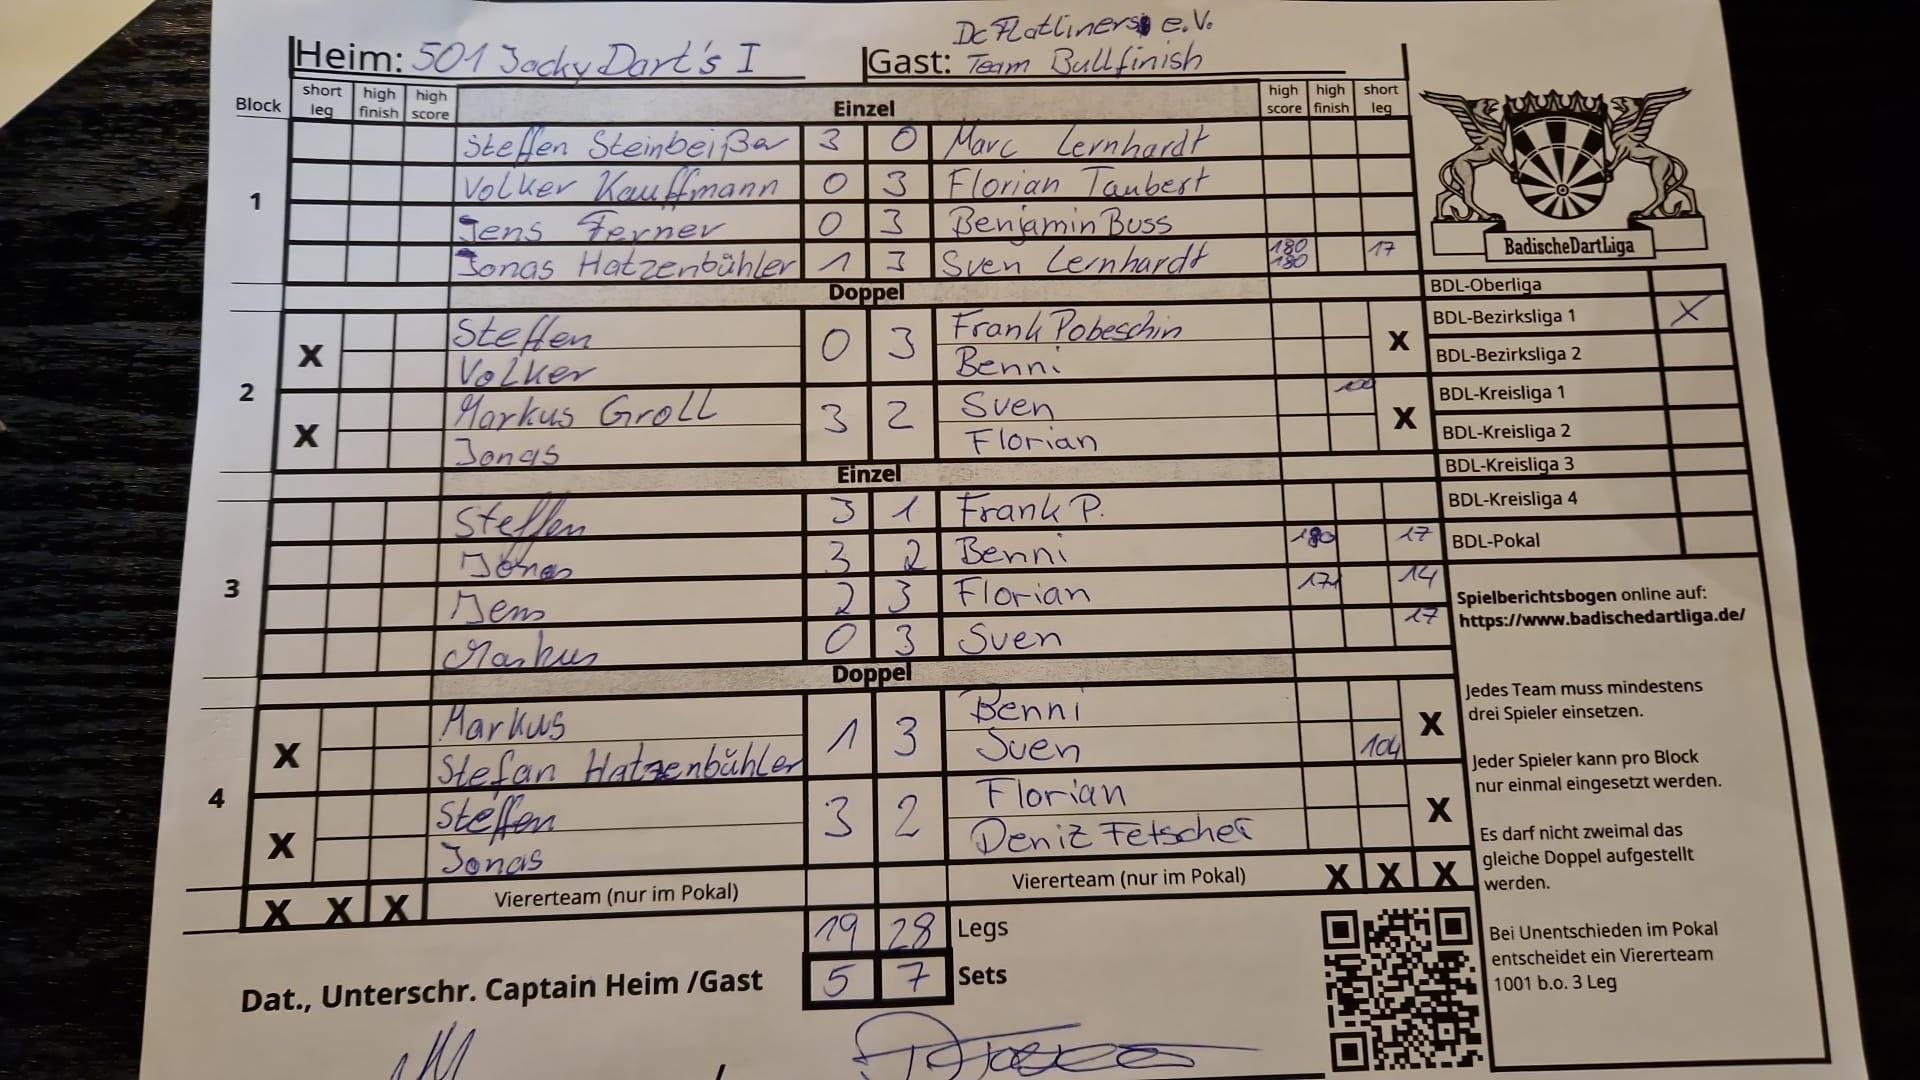 Dc Flatliners e.V.
Heim: 501 Jacky Dart's I Gast: Team Bullfinish
Block short leg high finish high score Einzel high score high finish short leg
1
Steffen Steinbeißer 3 0 Marc Lernhardt
Volker Kauffmann 0 3 Florian Taubert
Jens Ferner 0 3 Benjamin Buss
Jonas Hatzenbühler 1 3 Sven Lernhardt 180 180 17
BadischeDartLiga
Doppel
2
X Steffen 0 3 Frank Pobeschin X
Volker Benni
X Markus Groll 3 2 Sven 100 X
Jonas Florian
Einzel
3
Steffen 3 1 Frank P.
Jonas 3 2 Benni 180 17
Jens 2 3 Florian 171 14
Markus 0 3 Sven 17
Doppel
4
X Markus 1 3 Benni X
Stefan Hatzenbühler Sven 104
X Steffen 3 2 Florian X
Jonas Deniz Fetscher
X X X Viererteam (nur im Pokal) Viererteam (nur im Pokal) X X X
19 28 Legs
5 7 Sets
Dat., Unterschr. Captain Heim /Gast
/
BDL-Oberliga
BDL-Bezirksliga 1 X
BDL-Bezirksliga 2
BDL-Kreisliga 1
BDL-Kreisliga 2
BDL-Kreisliga 3
BDL-Kreisliga 4
BDL-Pokal
Spielberichtsbogen online auf:
https://www.badischedartliga.de/
Jedes Team muss mindestens
drei Spieler einsetzen.
Jeder Spieler kann pro Block
nur einmal eingesetzt werden.
Es darf nicht zweimal das
gleiche Doppel aufgestellt
werden.
Bei Unentschieden im Pokal
entscheidet ein Viererteam
1001 b.o. 3 Leg